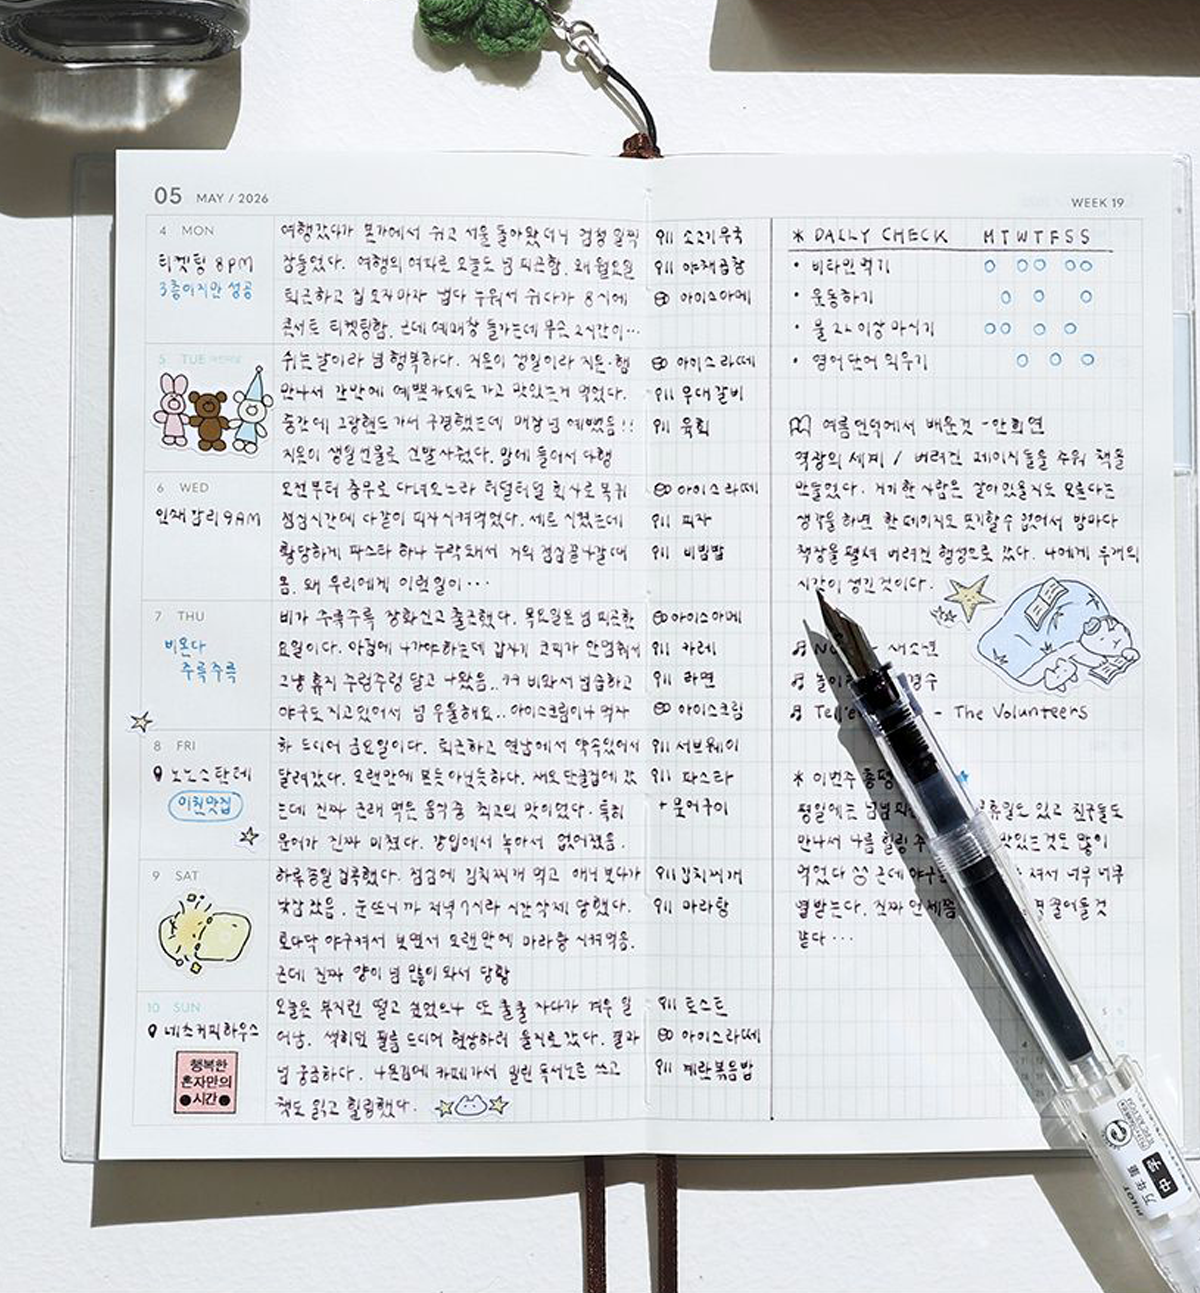 05 MAY / 2026
WEEK 19
4 MON
티켓팅 8PM
3층이지만 성공
여행갔다가 본가에서 쉬고 서울 돌아왔더니 엄청 일찍
잠들었다. 여행의 여파로 오늘도 넘 피곤함. 왜 월요일
퇴근하고 집 오자마자 냅다 누워서 쉬다가 8시에
콘서트 티켓팅함. 근데 예매창 들가는데 무슨 2시간이…
소고기무국
야채곱창
아이스아메
5 TUE
쉬는날이라 넘 행복하다. 지은이 생일이라 지은·햄
만나서 간만에 예쁜카페도 가고 맛있는거 먹었다.
중간에 그랑핸드 가서 구경했는데 매장 넘 예뻤음!!
지은이 생일선물로 신발사줬다. 밤에 들어서 다행
아이스라떼
우대갈비
육회
6 WED
인재관리 9AM
오전부터 충무로 다녀오느라 터덜터덜 회사로 복귀
점심시간에 다같이 피자시켜먹었다. 세트 시켰는데
황당하게 파스타 하나 누락돼서 거의 점심끝나갈때
옴. 왜 우리에게 이런일이…
아이스라떼
피자
비빔밥
7 THU
비온다
주륵주륵
비가 주륵주륵 장화신고 출근했다. 목요일은 넘 피곤한
요일이다. 아침에 나가야하는데 갑자기 코피가 안멈춰서
그냥 휴지 주렁주렁 달고 나왔음.. 겨 비와서 넘습하고
야구도지고있어서 넘 우울해요.. 아이스크림이나 먹자
아이스아메
카레
라면
아이스크림
8 FRI
노노스탄테
이천맛집
하 드디어 금요일이다. 퇴근하고 연남에서 약속있어서
달려갔다. 오랜만에 본듯아닌듯하다. 새로 단골집에 갔
는데 진짜 근래 먹은 음식중 최고의 맛이었다. 특히
문어가 진짜 미쳤다. 걍입에서 녹아서 없어졌음.
서브웨이
파스타
+문어구이
9 SAT
하루종일 집콕했다. 점심에 김치찌개 먹고 애니보다가
낮잠잤음. 눈뜨니까 저녁7시라 시간삭제 당했다.
호다닥 야구켜서 보면서 오랜만에 마라탕 시켜먹음.
근데 진짜 양이 넘 많이 와서 당황
김치찌개
마라탕
10 SUN
네츠커피하우스
행복한
혼자만의
시간
오늘은 부지런 떨고 싶었으나 또 쿨쿨 자다가 겨우 일
어남. 색히던 필름 드디어 현상하러 을지로 갔다. 결과
넘 궁금하다. 나온김에 카페가서 밀린 독서노트 쓰고
책도 읽고 힐링했다.
토스트
아이스라떼
계란볶음밥
* DAILY CHECK MTWTFSS
· 비타민먹기
· 운동하기
· 물 2L 이상 마시기
· 영어단어 외우기
여름 언덕에서 배운 것 -안희연
역광의 세계 / 버려진 페이지들을 주워 책을
만들었다. 거기 한 사람은 살아있을지도 모른다는
생각을 하면 한 페이지도 뜯기할수 없어서 밤마다
책장을 펼쳐 버려진 행성으로 갔다. 나에게 두개의
시간이 생긴것이다.
- 새소년
놀이
경수
Tell - The Volunteers
* 이번주 총평
평일에는 넘넘 휴일도 있고 친구들도
만나서 나름 힐링 맛있는것도 많이
먹었다 근데 야구는 져서 너무 너무
열받는다. 진짜 언제쯤 끌어올것
같다…
PILOT
万年筆
中字